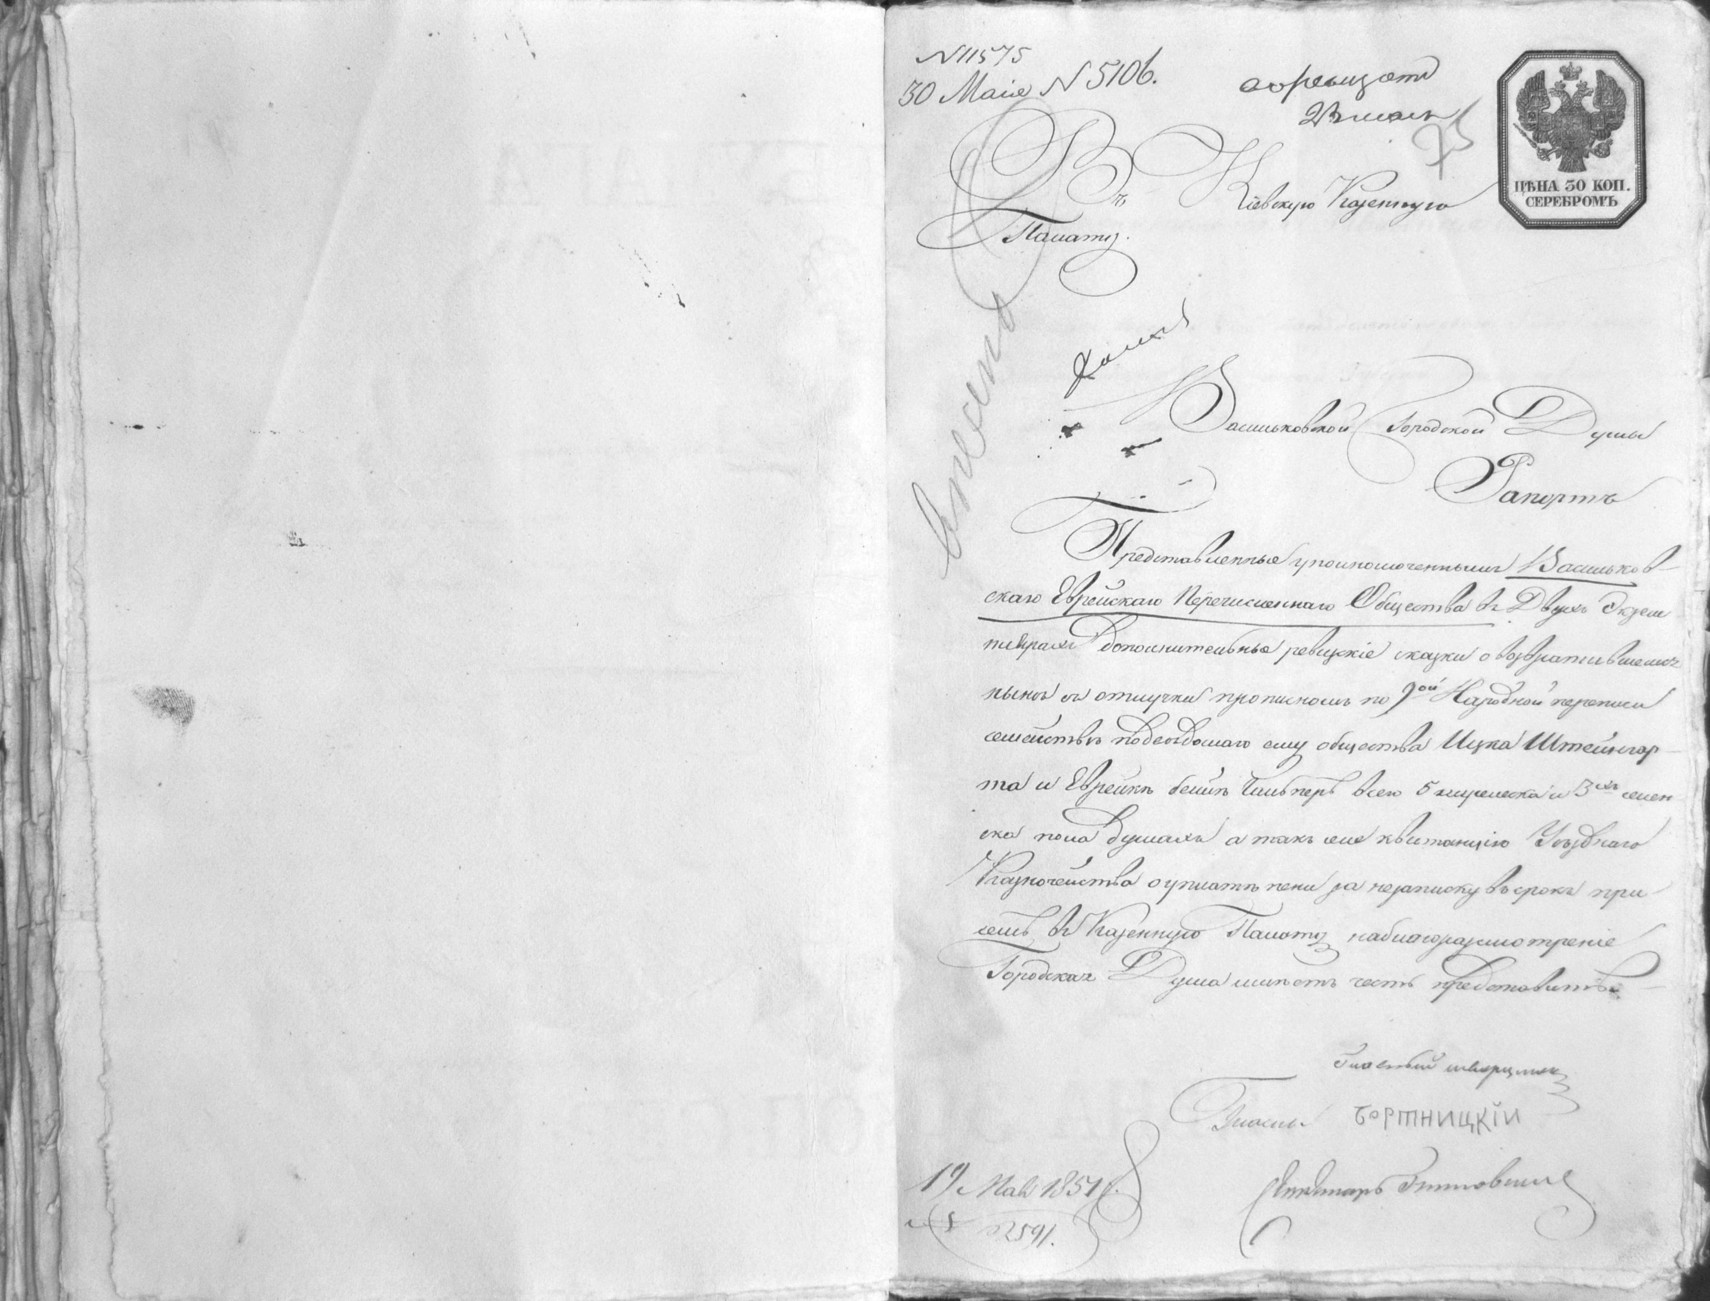 N 11575
30 Маія N 5106.
ЦѢНА 30 КОП.
СЕРЕБРОМЪ
Въ Кіевскую Казенную
Палату.
Васильковской Городской Думы
Рапортъ
Представленные уполномоченнымъ Васильков-
скаго Еврейскаго Перечисленнаго Общества въ двухъ Экзем
плярахъ дополнительные ревизкіе сказки о возвратившемся
нынѣ съ отлучки прописномъ по 9ой Народной переписи
семействѣ подвѣдомаго ему общества Ицка Штейнгар-
та и Еврейкѣ Бейлѣ всего 5 мужеска и 3хъ женс-
ка пола душахъ а такъ же квитанцію Уѣзднаго
Казначейства о уплатѣ пени за незаписку въ срокъ при
семъ въ Казенную Палату на благоразсмотреніе
Городская Дума имѣетъ честь представить
Гласный
Гласный БОРТНИЦКІЙ
Секретарь
19 Мая 1851 г.
N 2591.